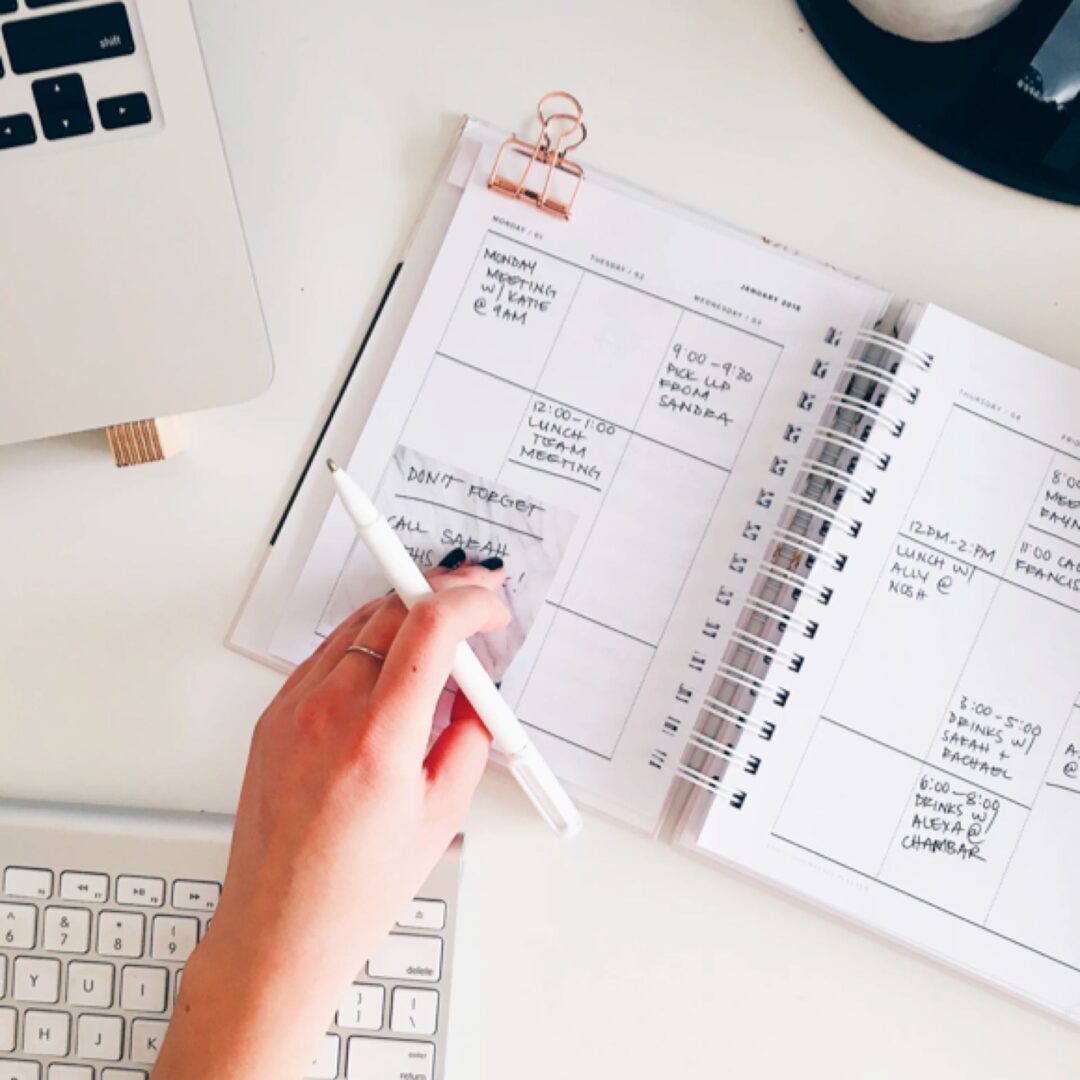 shift
MONDAY / 01
TUESDAY / 02
JANUARY 2018
WEDNESDAY / 03
MONDAY
MEETING
W/ KATIE
@ 9AM
9:00 - 9:30
PICK UP
FROM
SANDRA
12:00-1:00
LUNCH
TEAM
MEETING
DON'T FORGET
CALL SARAH
THURSDAY / 04
8:00
MEE
11:00
FRANCIS
12PM-2:PM
LUNCH W/
ALLY @
NOSH
3:00-5:00
DRINKS W/
SARAH +
RACHAEL
A
@
6:00-8:00
DRINKS W/
ALEXA @
CHAMBAR
^ 6
& 7
* 8
( 9
delete
Y U I
} ]
| \
H J K
enter
return